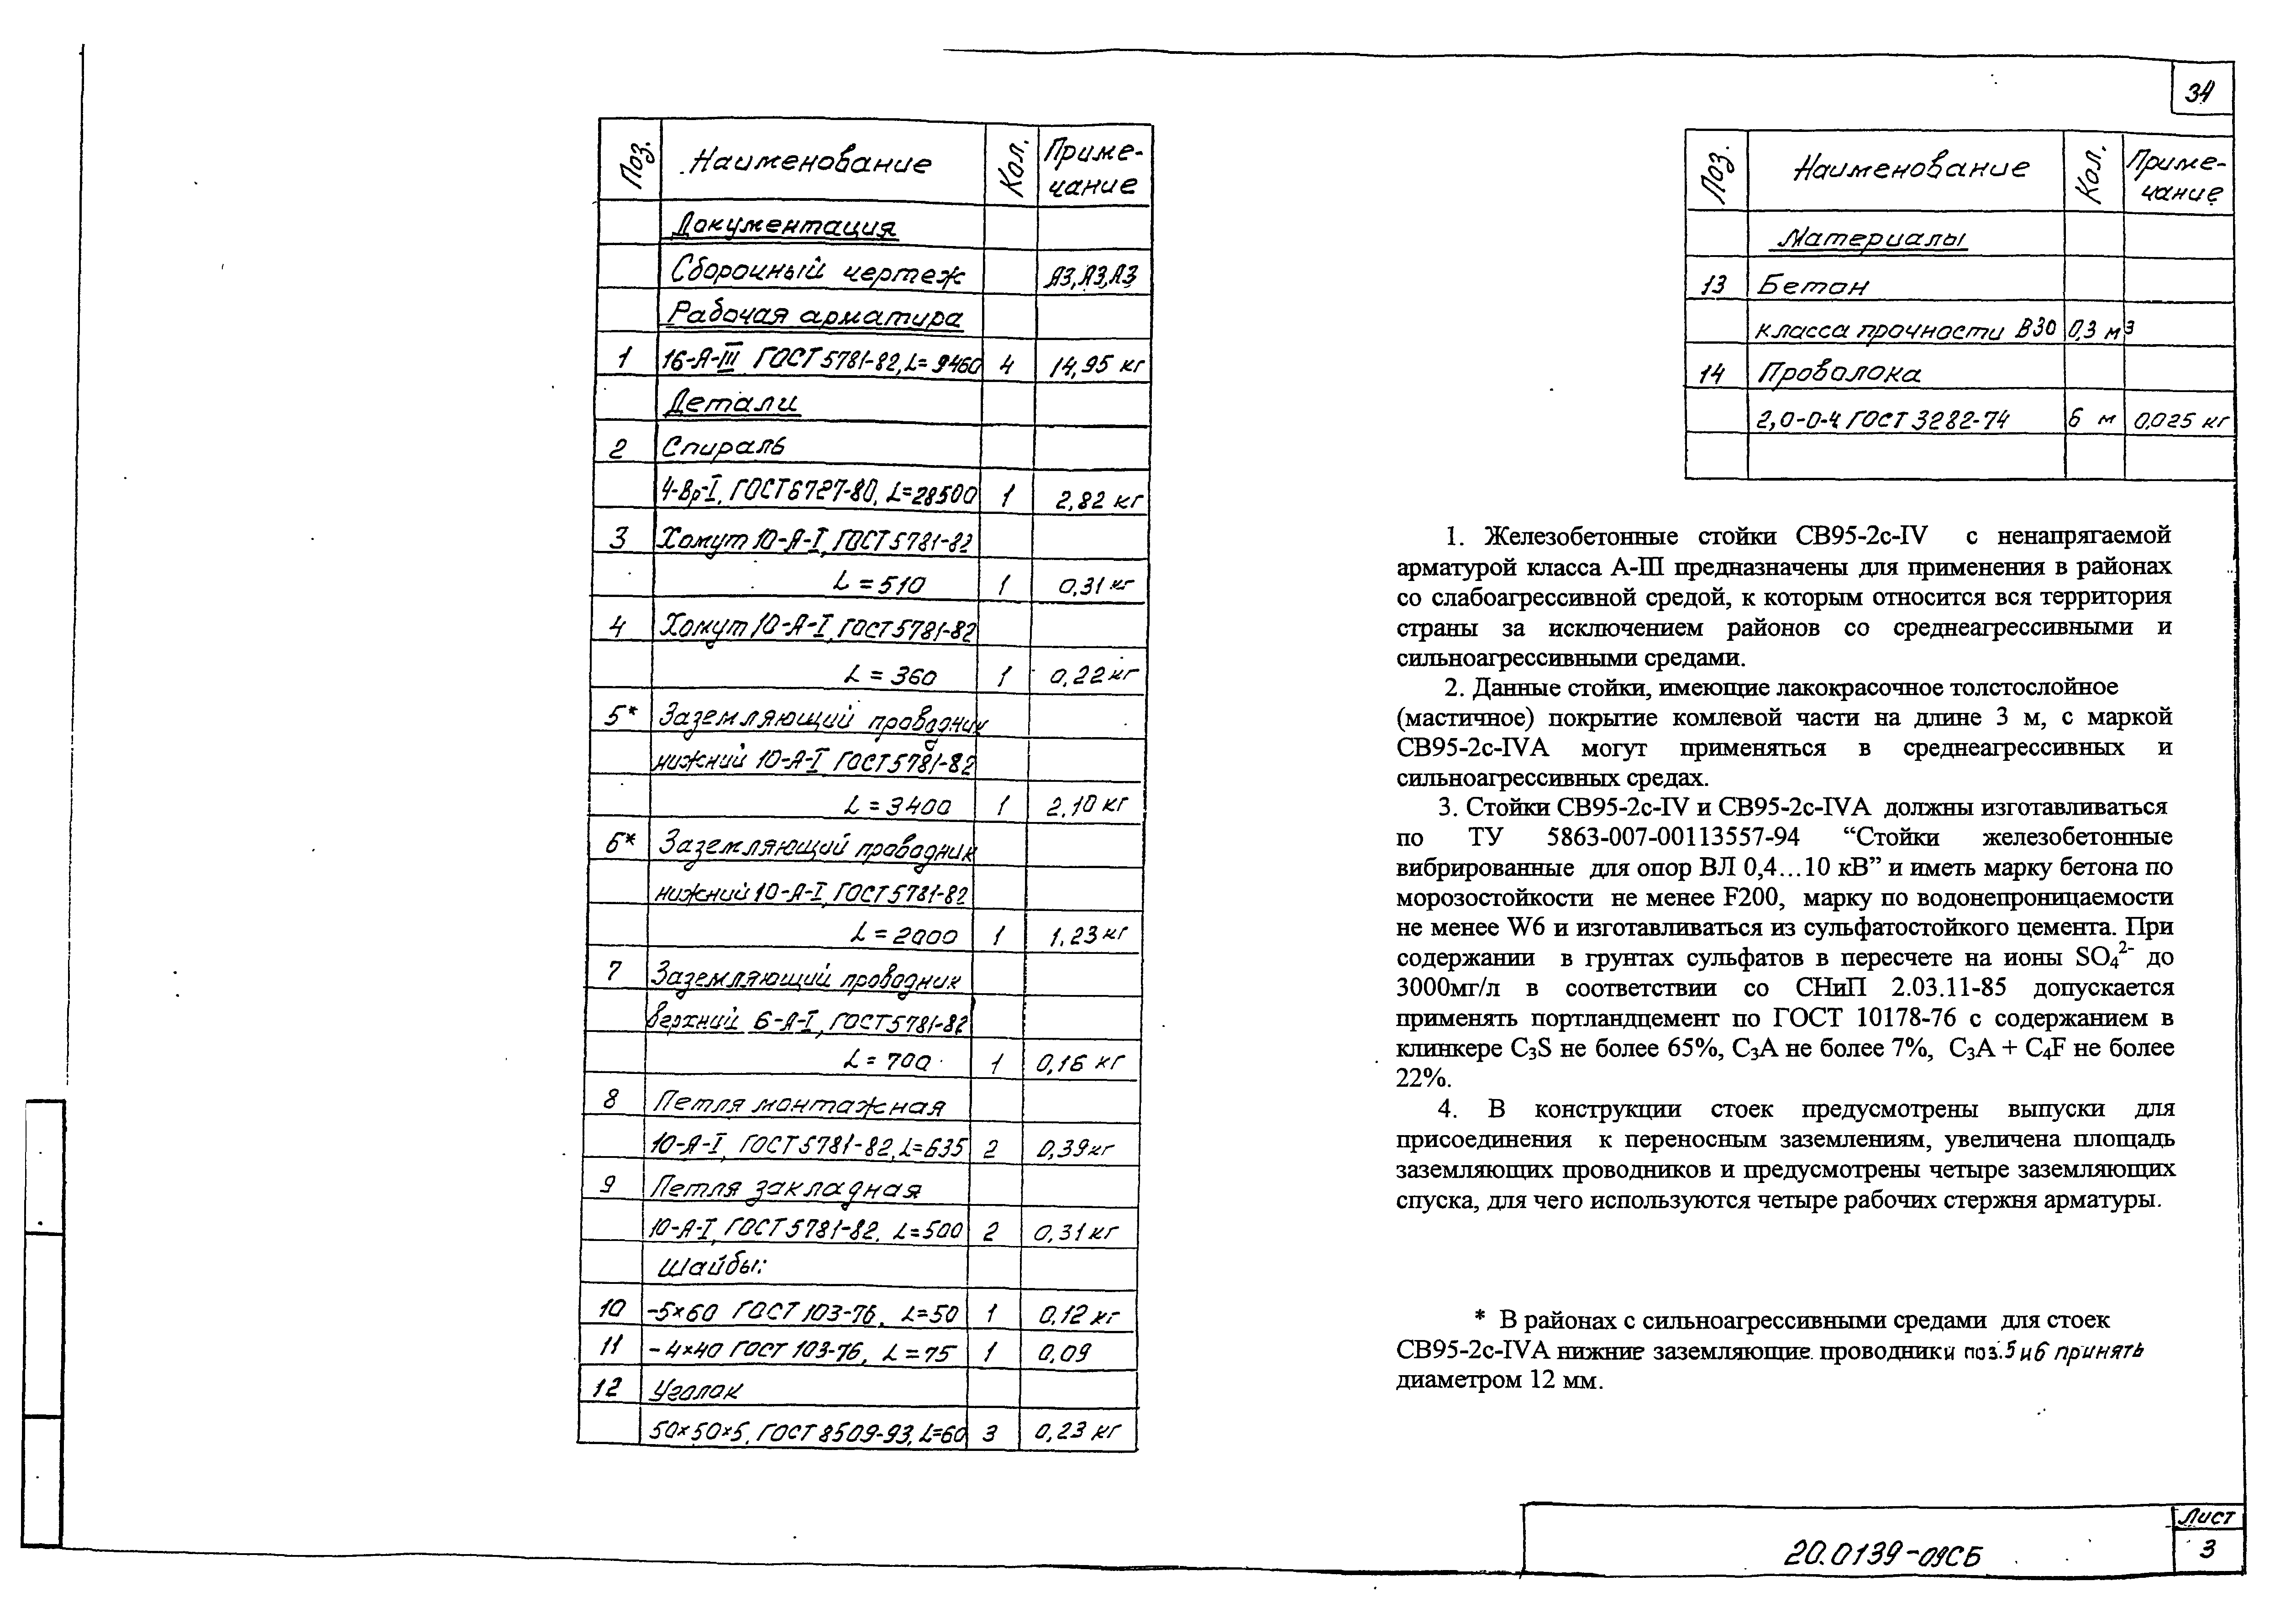 34
Поз. Наименование Кол. Приме-
чание
Документация
Сборочный чертеж А3,А3,А3
Рабочая арматура
1 16-А-III ГОСТ 5781-82, L=9460 4 14,95 кг
Детали
2 Спираль
4-Вр-I, ГОСТ 6727-80, L=28500 1 2,82 кг
3 Хомут 10-А-I, ГОСТ 5781-82
L=510 1 0,31 кг
4 Хомут 10-А-I, ГОСТ 5781-82
L=360 1 0,22 кг
5* Заземляющий проводник
нижний 10-А-I, ГОСТ 5781-82
L=3400 1 2,10 кг
6* Заземляющий проводник
нижний 10-А-I, ГОСТ 5781-82
L=2000 1 1,23 кг
7 Заземляющий проводник
верхний 6-А-I, ГОСТ 5781-82
L=700 1 0,16 кг
8 Петля монтажная
10-А-I, ГОСТ 5781-82, L=635 2 0,39 кг
9 Петля закладная
10-А-I, ГОСТ 5781-82, L=500 2 0,31 кг
Шайбы:
10 -5×60 ГОСТ 103-76, L=50 1 0,12 кг
11 -4×40 ГОСТ 103-76, L=75 1 0,09
12 Уголок
50×50×5, ГОСТ 8509-93, L=60 3 0,23 кг
Поз. Наименование Кол. Приме-
чание
Материалы
13 Бетон
класса прочности В30 0,3 м3
14 Проволока
2,0-0-Ч ГОСТ 3282-74 6 м 0,025 кг
1. Железобетонные стойки СВ95-2с-IV с ненапрягаемой
арматурой класса А-III предназначены для применения в районах
со слабоагрессивной средой, к которым относится вся территория
страны за исключением районов со среднеагрессивными и
сильноагрессивными средами.
2. Данные стойки, имеющие лакокрасочное толстослойное
(мастичное) покрытие комлевой части на длине 3 м, с маркой
СВ95-2с-IVА могут применяться в среднеагрессивных и
сильноагрессивных средах.
3. Стойки СВ95-2с-IV и СВ95-2с-IVА должны изготавливаться
по ТУ 5863-007-00113557-94 “Стойки железобетонные
вибрированные для опор ВЛ 0,4...10 кВ” и иметь марку бетона по
морозостойкости не менее F200, марку по водонепроницаемости
не менее W6 и изготавливаться из сульфатостойкого цемента. При
содержании в грунтах сульфатов в пересчете на ионы SO₄²⁻ до
3000мг/л в соответствии со СНиП 2.03.11-85 допускается
применять портландцемент по ГОСТ 10178-76 с содержанием в
клинкере C₃S не более 65%, C₃A не более 7%, C₃A + C₄F не более
22%.
4. В конструкции стоек предусмотрены выпуски для
присоединения к переносным заземлениям, увеличена площадь
заземляющих проводников и предусмотрены четыре заземляющих
спуска, для чего используются четыре рабочих стержня арматуры.
* В районах с сильноагрессивными средами для стоек
СВ95-2с-IVА нижние заземляющие проводники поз.5 и 6 принять
диаметром 12 мм.
20.0139-09СБ
Лист
3